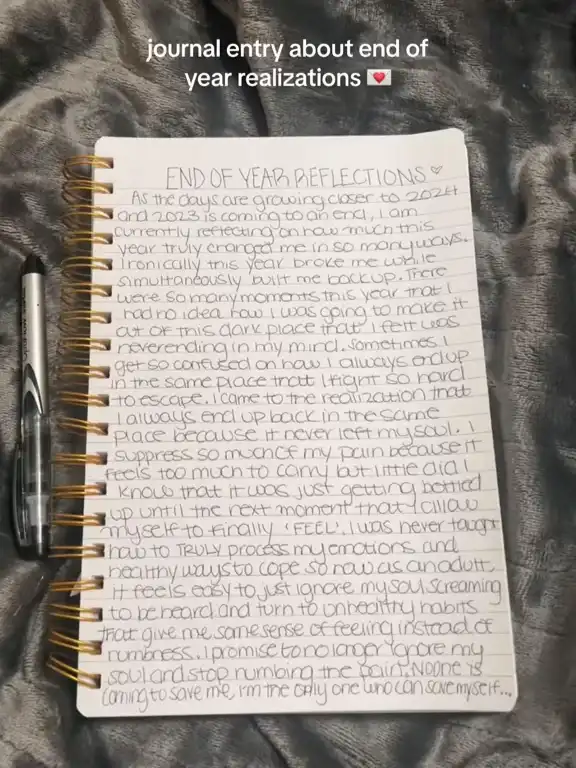 journal entry about end of
year realizations 💌
END OF YEAR REFLECTIONS ♡
As the days are growing closer to 2024
and 2023 is coming to an end, I am
currently reflecting on how much this
year truly changed me in so many ways.
Ironically this year broke me while
simultaneously built me back up. There
were so many moments this year that I
had no idea how I was going to make it
out of this dark place that I felt was
neverending in my mind. Sometimes I
get so confused on how I always end up
in the same place that I fight so hard
to escape. I came to the realization that
I always end up back in the same
place because it never left my soul. I
suppress so much of my pain because it
feels too much to carry but little did I
know that it was just getting bottled
up until the next moment that I allow
myself to finally 'FEEL'. I was never taught
how to TRULY process my emotions and
healthy ways to cope so now as an adult,
it feels easy to just ignore my soul screaming
to be heard and turn to unhealthy habits
that give me some sense of feeling instead of
numbness. I promise to no longer ignore my
soul and stop numbing the pain. No one is
coming to save me, I'm the only one who can save myself...